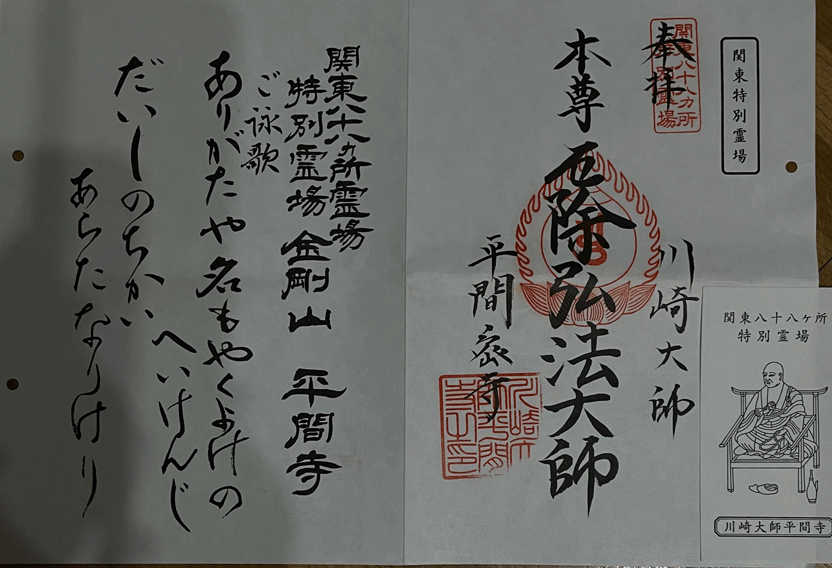 関東特別霊場
奉拝
関東八十八カ所
特別霊場
川崎大師
本尊 厄除弘法大師
平間密寺
川崎大
師平間
寺之印
関東八十八ヶ所
特別霊場
川崎大師平間寺
関東八十八ヵ所霊場
特別霊場 金剛山 平間寺
ご詠歌
ありがたや名もやくよけの
へいけんじ
だいしのちかい
あらたなりけり